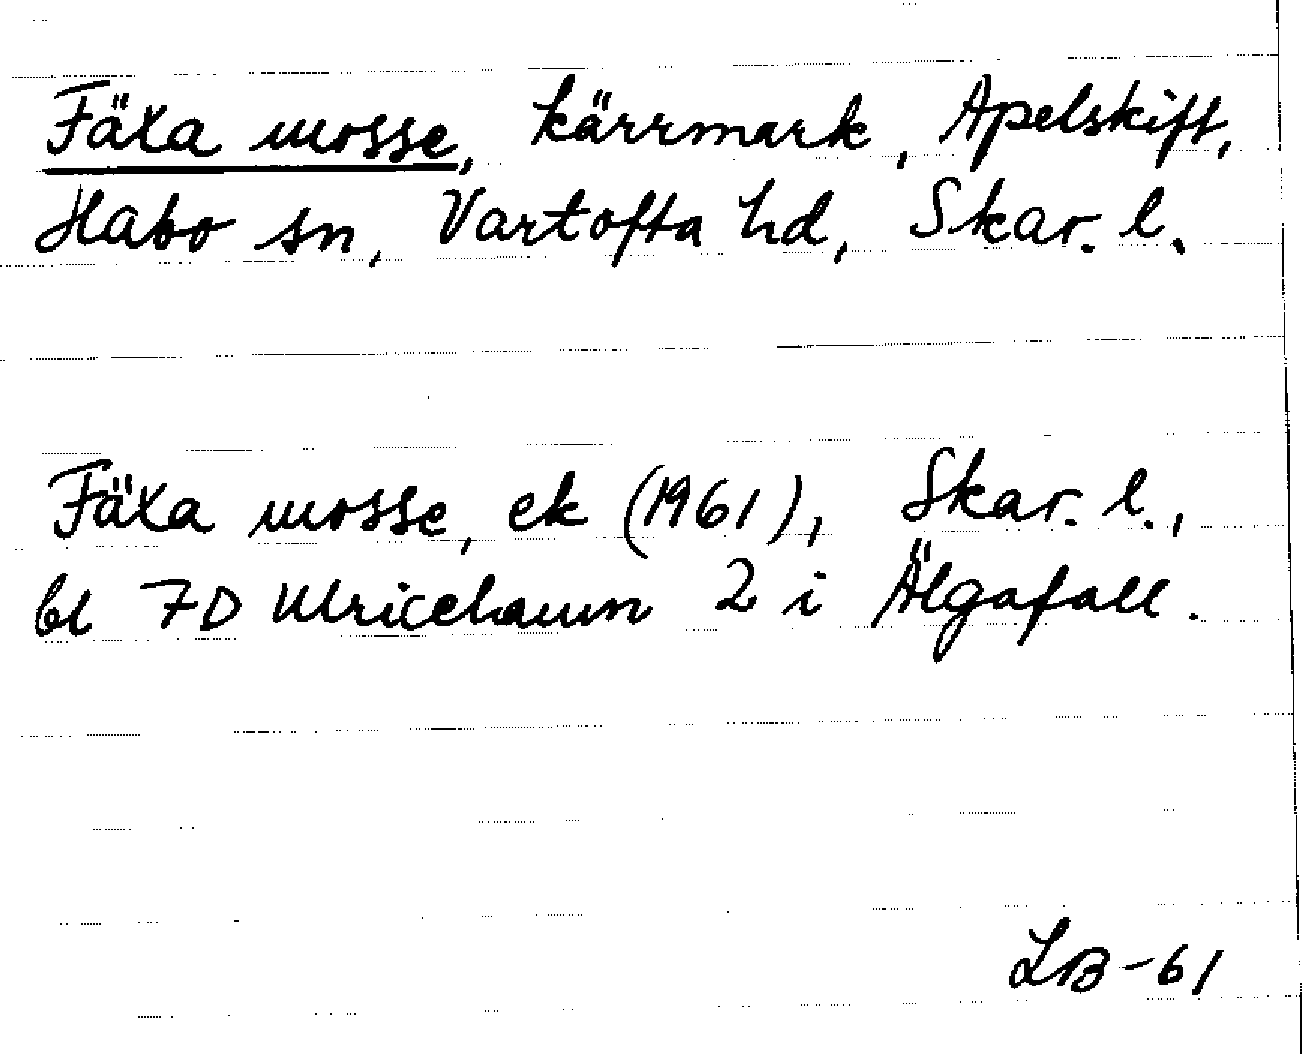 Fäxa mosse, kärrmark, Apelskift,
Habo sn, Vartofta hd, Skar. l.
Fäxa mosse, ek (1961), Skar. l.,
bl 7D Ulricehamn 2 i Älgafall.
LB-61